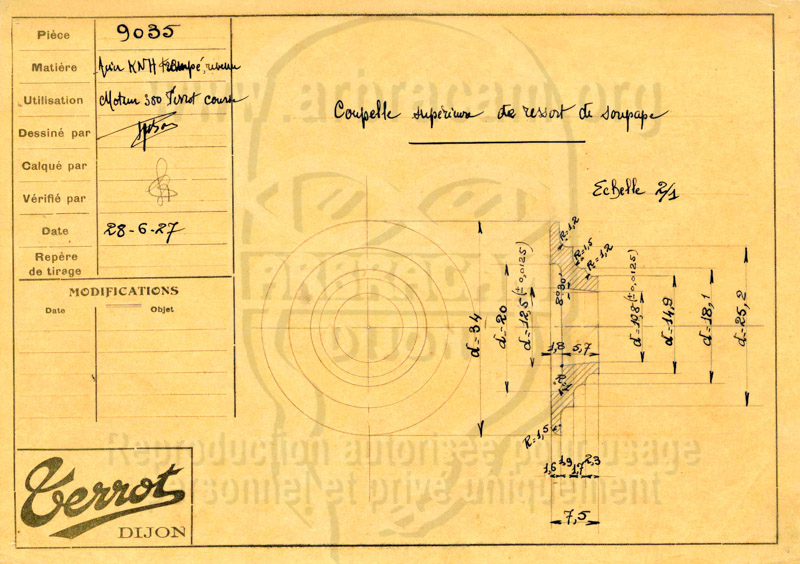 Pièce 9035
Matière Acier KNH trempé, revenu
Utilisation Moteur 350 Terrot course
Dessiné par
Calqué par
Vérifié par
Date 28-6-27
Repère
de tirage
MODIFICATIONS
Date Objet
Terrot
DIJON
www.arbracam.org
Coupelle supérieure de ressort de soupape
Echelle 2/1
R=1,2
R=1,5
R=1,2
8°30'
d=34
d=20
d=12,5 (±0,0125)
d=10,8 (±0,0125)
d=14,9
d=18,1
d=25,2
1,8 5,7
R=1,5
1,6 1,9 1,7 2,3
7,5
ARBRACAM
DIJON
Reproduction autorisée pour usage
personnel et privé uniquement